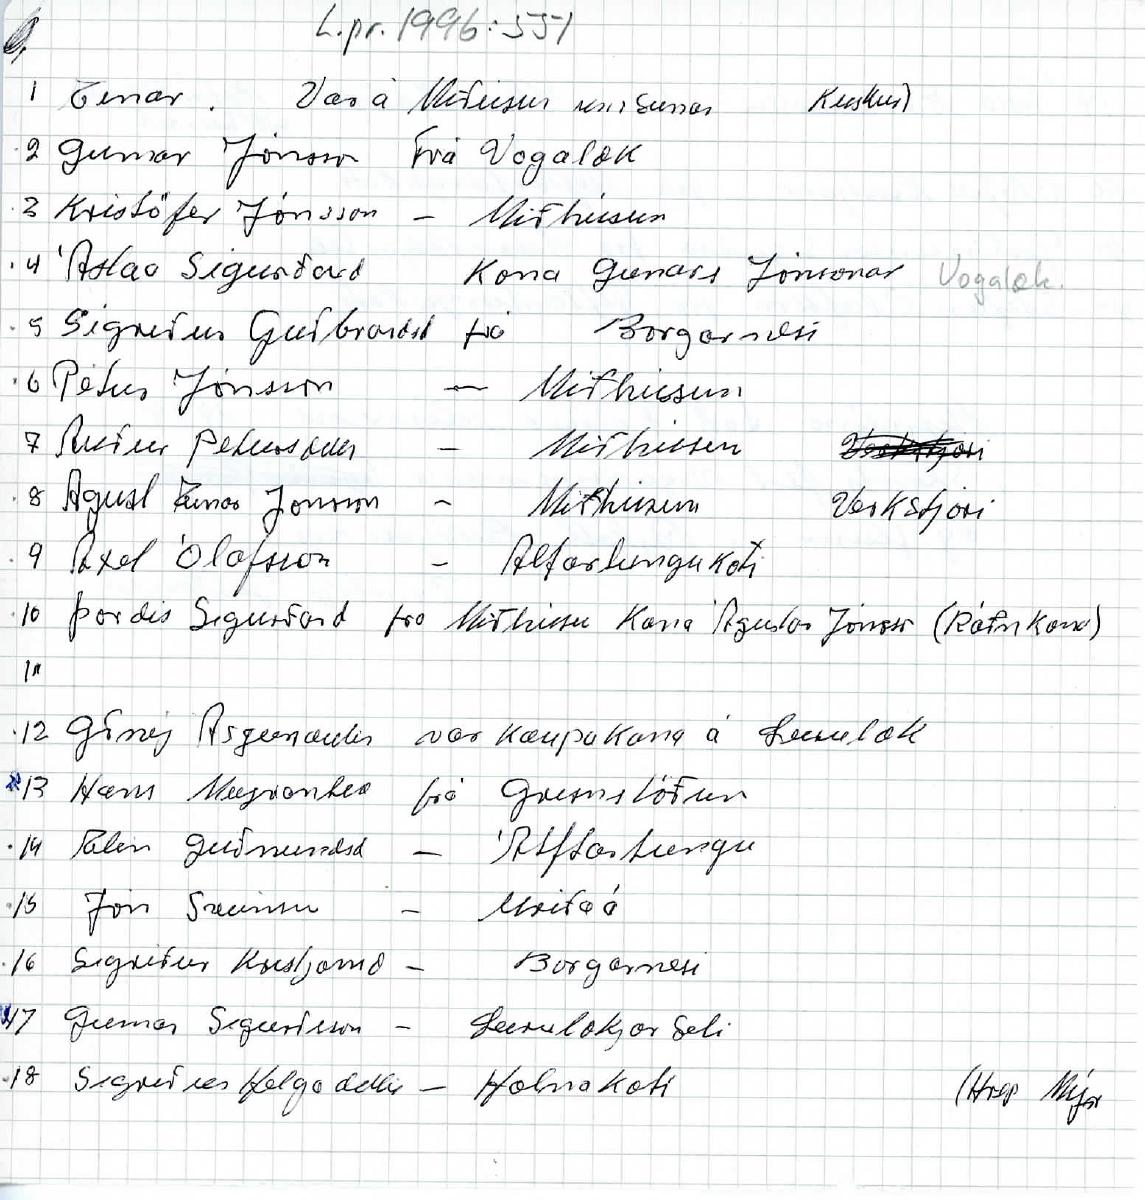 L.pr. 1996:551
1 Einar. Var á Miðhúsum
2 Gunnar Jónsson Frá Vogalæk
3 Kristófer Jónsson - Miðhúsum
4 Áslaug Sigurðard Kona Gunnars Jónsonar Vogalæk.
5 Sigríður Guðbrandsd frá Borgarnesi
6 Pétur Jónsson - Miðhúsum
7 Pétursdóttir - Miðhúsum Verkstjóri
8 Agúst Einar Jónsson - Miðhúsum Verkstjóri
9 Axel Ólafsson - Álftártungukoti
10 Þordís Sigurðard frá Miðhúsum Kona Ágústar Jónsson (Ráðskona)
11
12 Guðný Ásgeirsdóttir var kaupakona á Leirulæk
13 Hans Meyvantss frá Grímsstöðum
14 Guðmundsd - Álftártungu
15 Jón - Hítará
16 Sigríður Kristjansd - Borgarnesi
17 Gunnar Sigurðsson - Leirulækjarseli
18 Sigríður Helgadóttir - Hólmakoti (Hrep Mýra